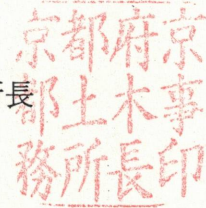 長
京都府京
都土木事
務所長印